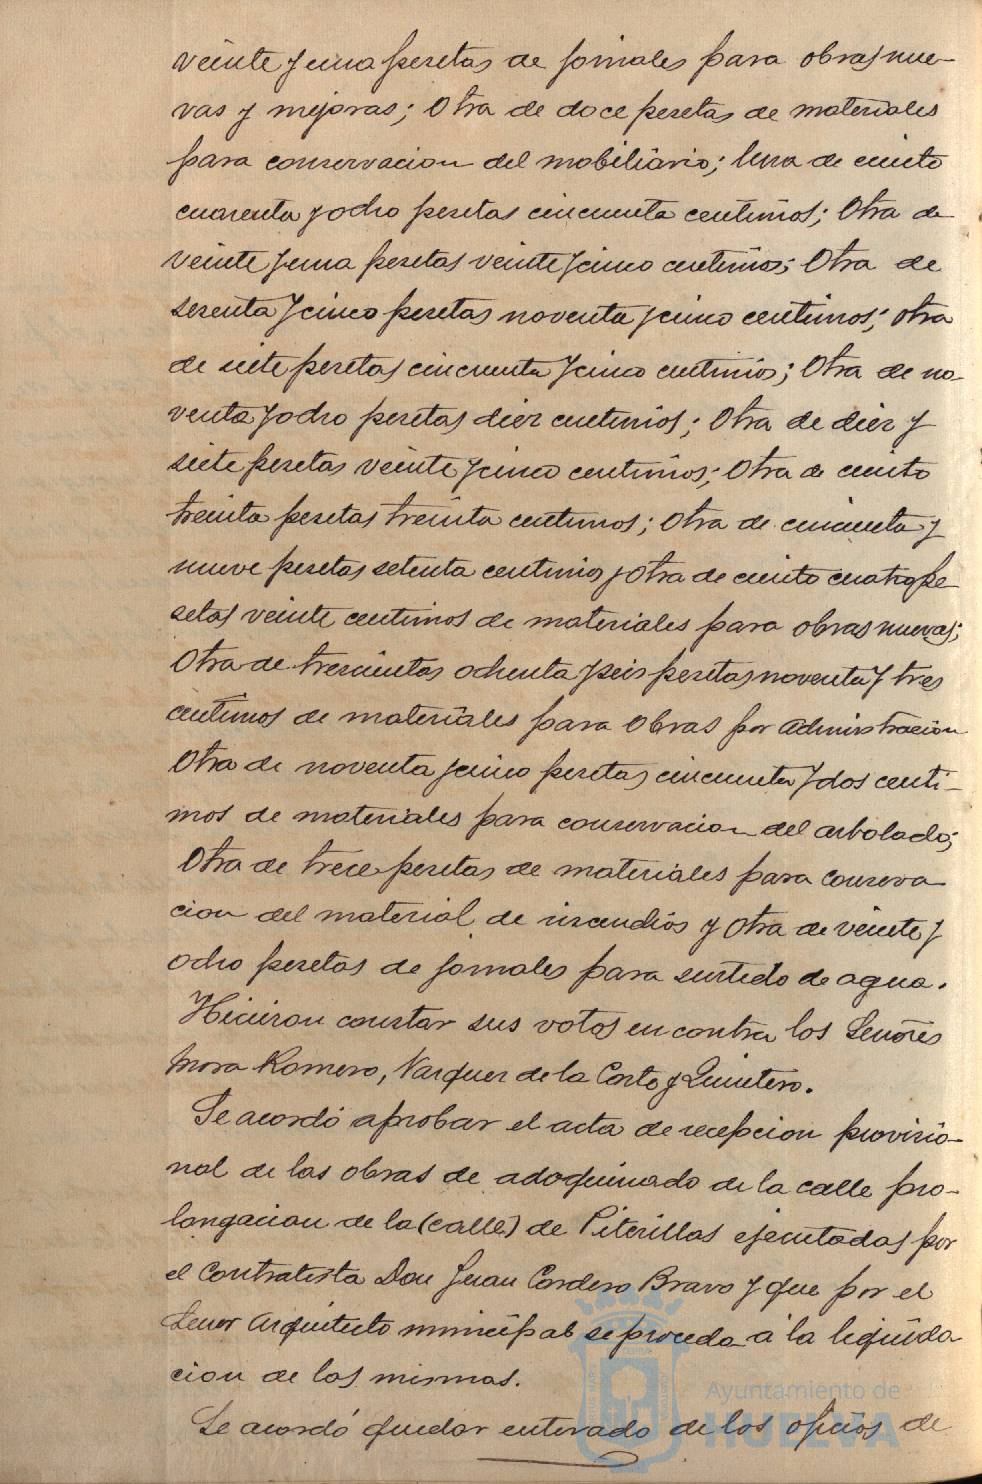 veinte y una pesetas de jornales para obras nue-
vas y mejoras; Otra de doce pesetas de materiales
para conservacion del mobiliario; Una de ciento
cuarenta y ocho pesetas cincuenta centimos; Otra de
veinte y una pesetas veinte y cinco centimos; Otra de
sesenta y cinco pesetas noventa y cinco centimos; Otra
de siete pesetas cincuenta y cinco centimos; Otra de no-
venta y ocho pesetas diez centimos; Otra de diez y
siete pesetas veinte y cinco centimos; Otra de ciento
treinta pesetas treinta centimos; Otra de cincuenta y
nueve pesetas setenta centimos y Otra de ciento cuatro pe
setas veinte centimos de materiales para obras nuevas;
Otra de trescientas ochenta y seis pesetas noventa y tres
centimos de materiales para Obras por Administracion
Otra de noventa y cinco pesetas cincuenta y dos centi-
mos de materiales para conservacion del arbolado;
Otra de trece pesetas de materiales para conserva
cion del material de incendios y Otra de veinte y
ocho pesetas de jornales para surtido de agua.
Hicieron constar sus votos en contra los Señores
Mora Romero, Vazquez de la Corte y Quintero.
Se acordó aprobar el acta de recepcion provisio-
nal de las obras de adoquinado de la calle pro-
longacion de la (calle) de Piterillas ejecutadas por
el Contratista Don Juan Cordero Bravo y que por el
Señor Arquitecto municipal se proceda á la liquida
cion de las mismas.
Se acordó quedar enterado de los oficios de
Ayuntamiento de
HUELVA